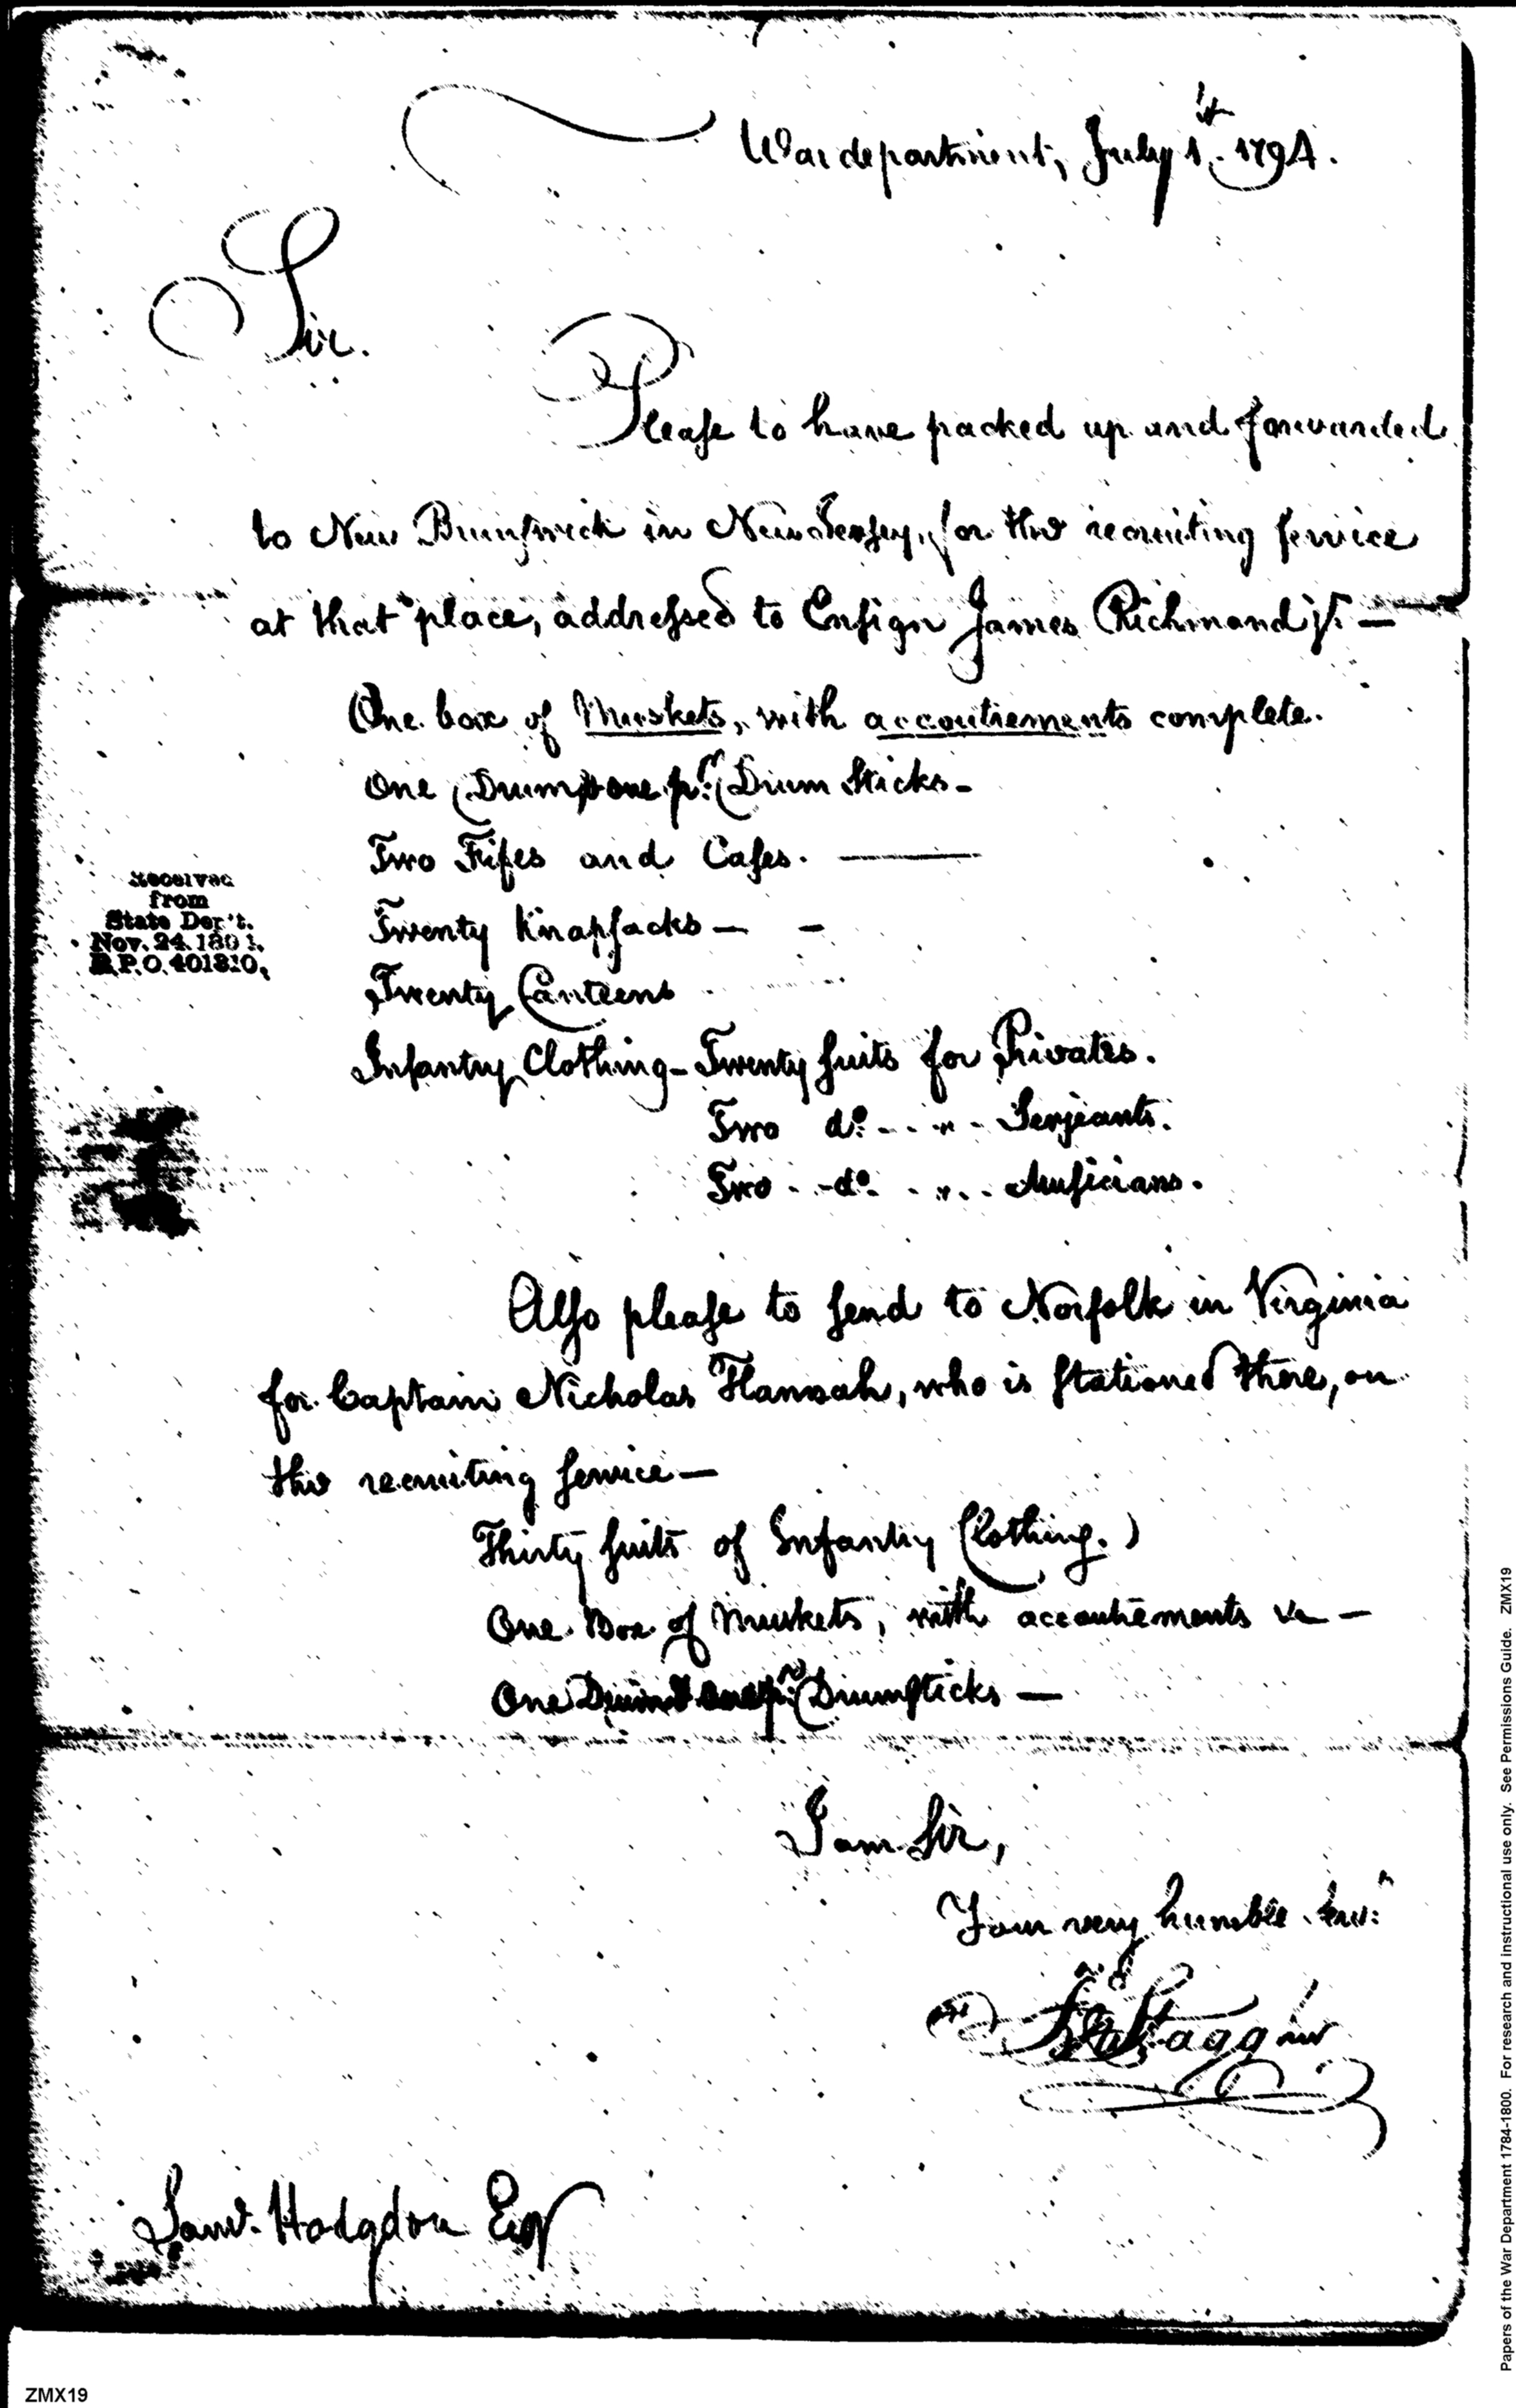 War department, July 1st. 1794.
Sir.
Please to have packed up and forwarded
to New Brunswick in New Jersey, for the recruiting service
at that place, addressed to Ensign James Richmond jr. —
One box of Muskets, with accoutrements complete.
One Drum & one pr. Drum Sticks -
Two Fifes and Cases. —
Twenty Knapsacks — -
Twenty Canteens
Infantry Clothing - Twenty suits for Privates.
Two do. - . " - Serjeants.
Two . . - do. . " . . Musicians.
Received
from
State Dep't.
Nov. 24. 1891.
R.P.O. 401810,
Also please to send to Norfolk in Virginia
for Captain Nicholas Hannah, who is stationed there, on
the recruiting service —
Thirty suits of Infantry Clothing.
One Box of Muskets, with accoutrements &c —
One Drum & one pr. Drumsticks —
I am Sir,
Your very humble Servt.
Jno Stagg Jnr
Saml. Hodgdon Esqr
Papers of the War Department 1784-1800. For research and instructional use only. See Permissions Guide. ZMX19
ZMX19